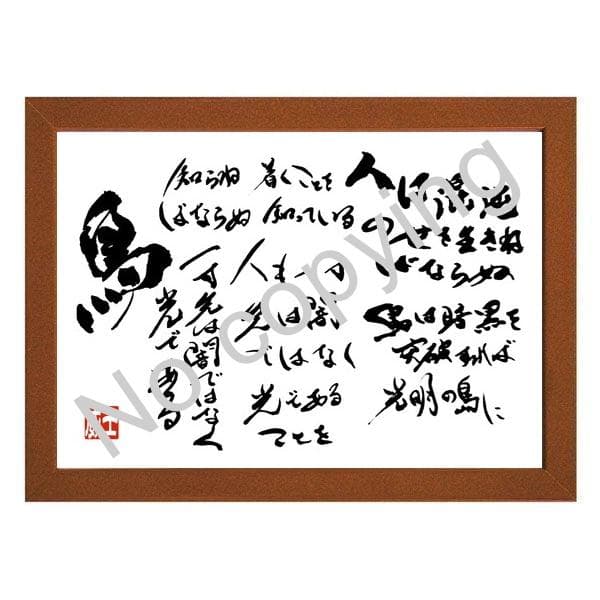 鳥
人は混迷
の世を生きね
ばならぬ
鳥は暗黒を
突破すれば
光明の島に
着くことを
知っている
人も一寸
先は闇
ではなく
光である
ことを
知らね
ばならぬ
一寸先は闇ではなく
光である
No copying